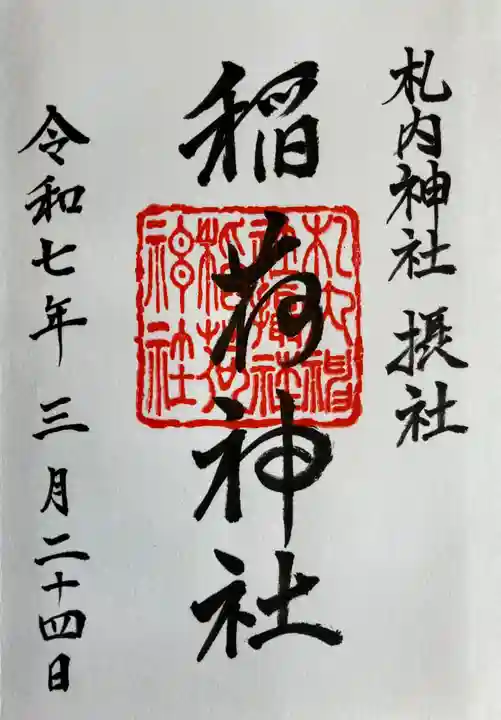 札内神社 摂社
稲荷神社
令和七年 三月二十四日
札内神
社摂社
稲荷
神社